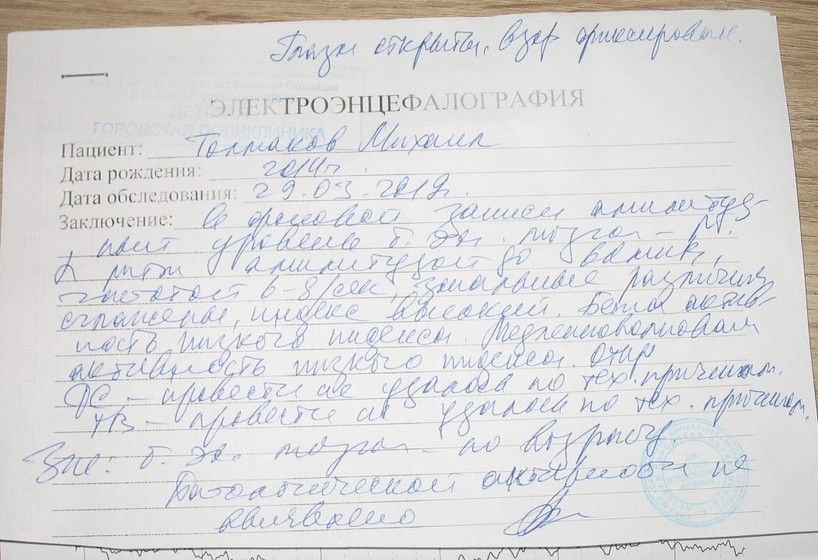 Глаза открыты, взор фиксирован.
ДЕТСКАЯ
ГОРОДСКАЯ ПОЛИКЛИНИКА
ЭЛЕКТРОЭНЦЕФАЛОГРАФИЯ
Пациент: Толмаков Михаил
Дата рождения: 2014г.
Дата обследования: 29.03.2019г.
Заключение: В фоновой записи амплитуд-
ный уровень б. эл. мозга -
α ритм амплитудой до
частотой 6-8/сек, зональные различия
сглажены, индекс высокий. Бета актив-
ность низкого индекса. Медленноволновая
активность низкого индекса.
ФС - провести не удалось по тех. причинам.
ГВ - провести не удалось по тех. причинам.
Зкл: б. эл. мозга - по возрасту.
Патологической активности не
выявлено